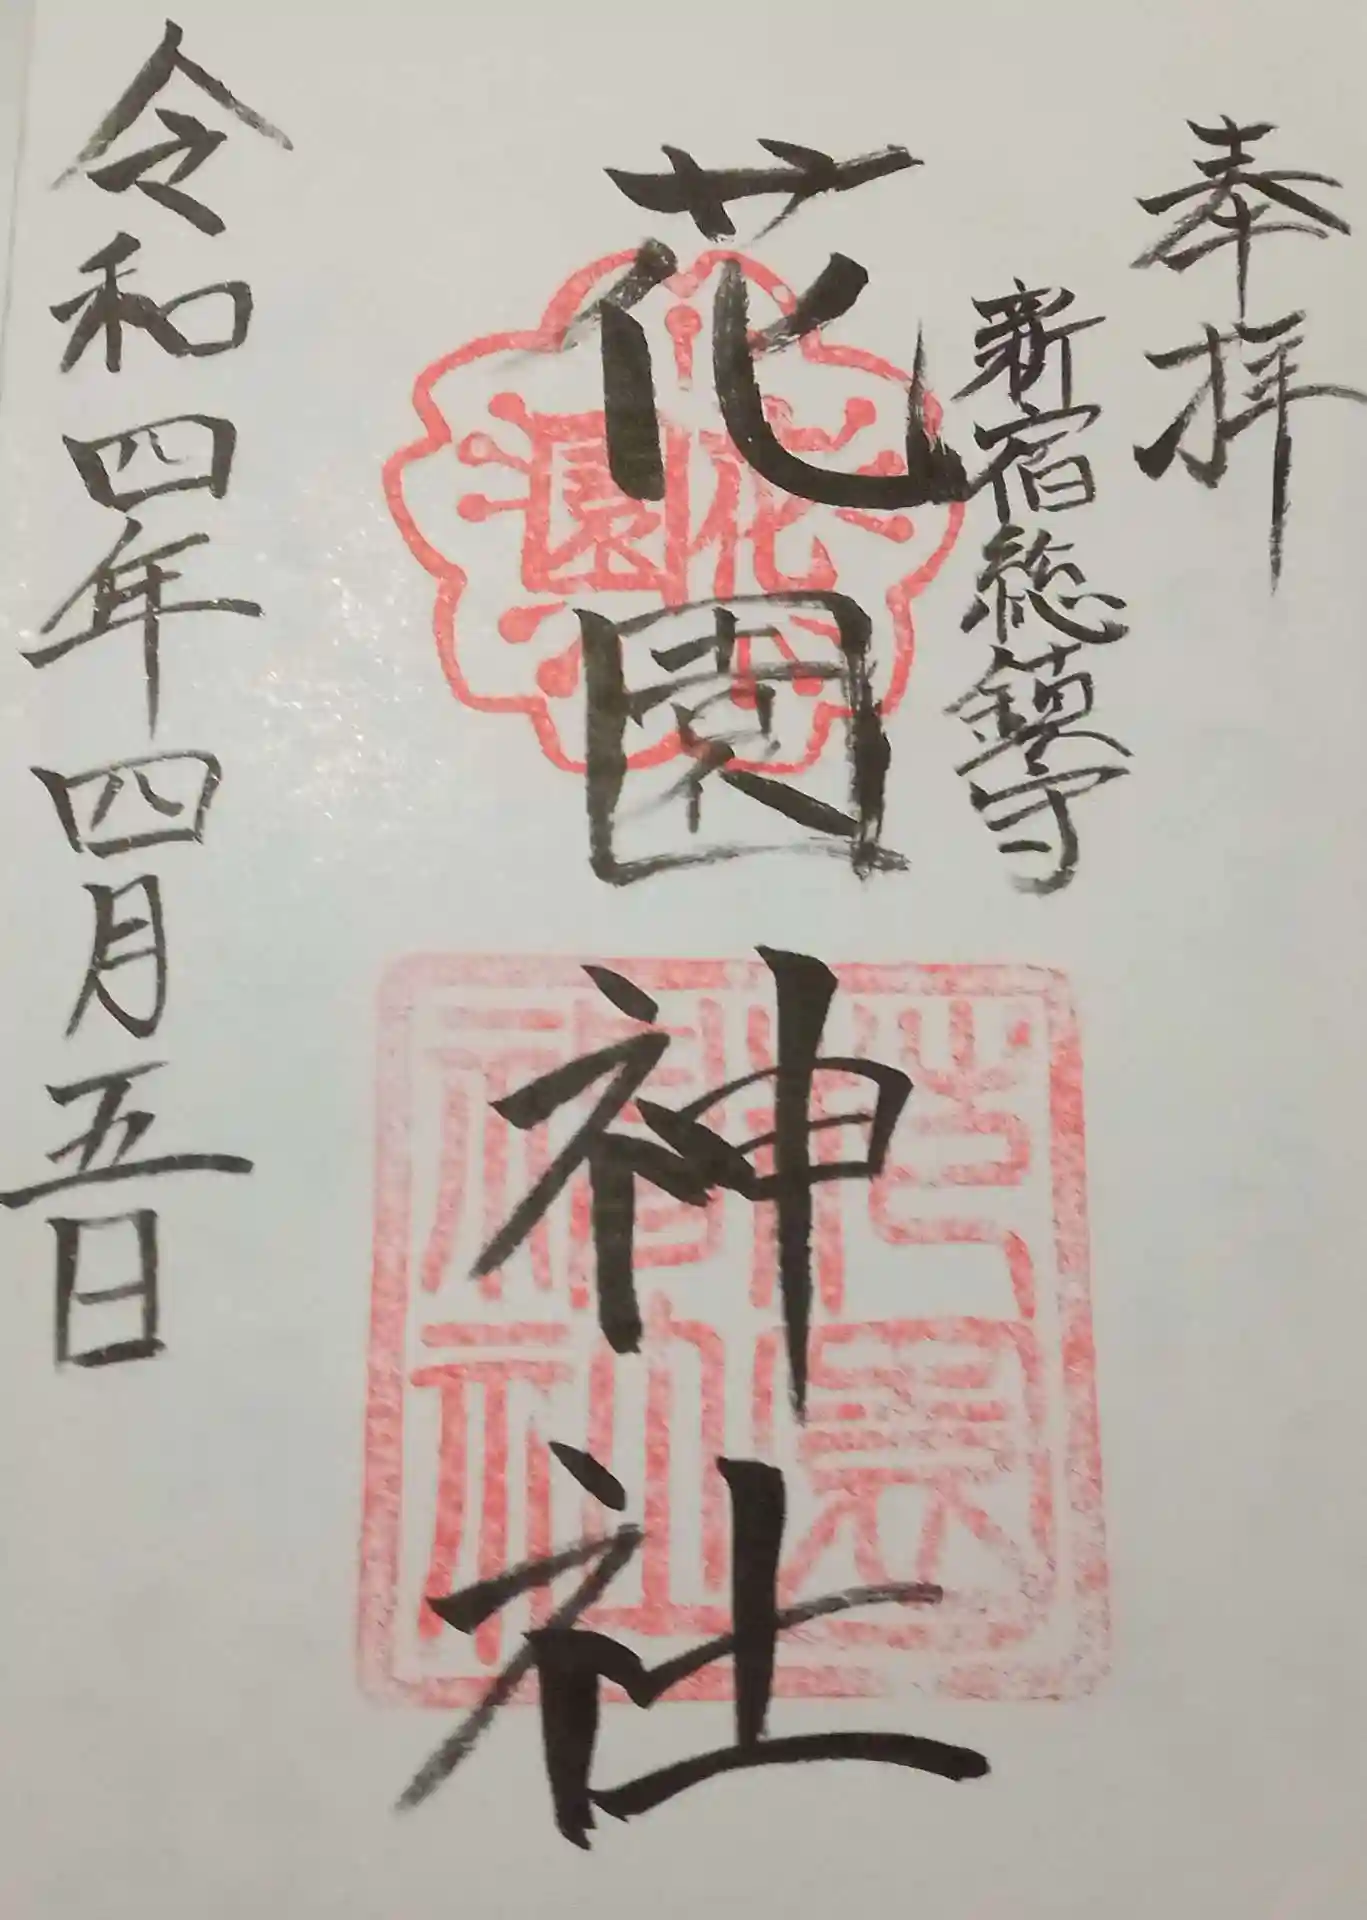 奉拝
新宿総鎮守
花園神社
花園
花園神社
令和四年四月五日